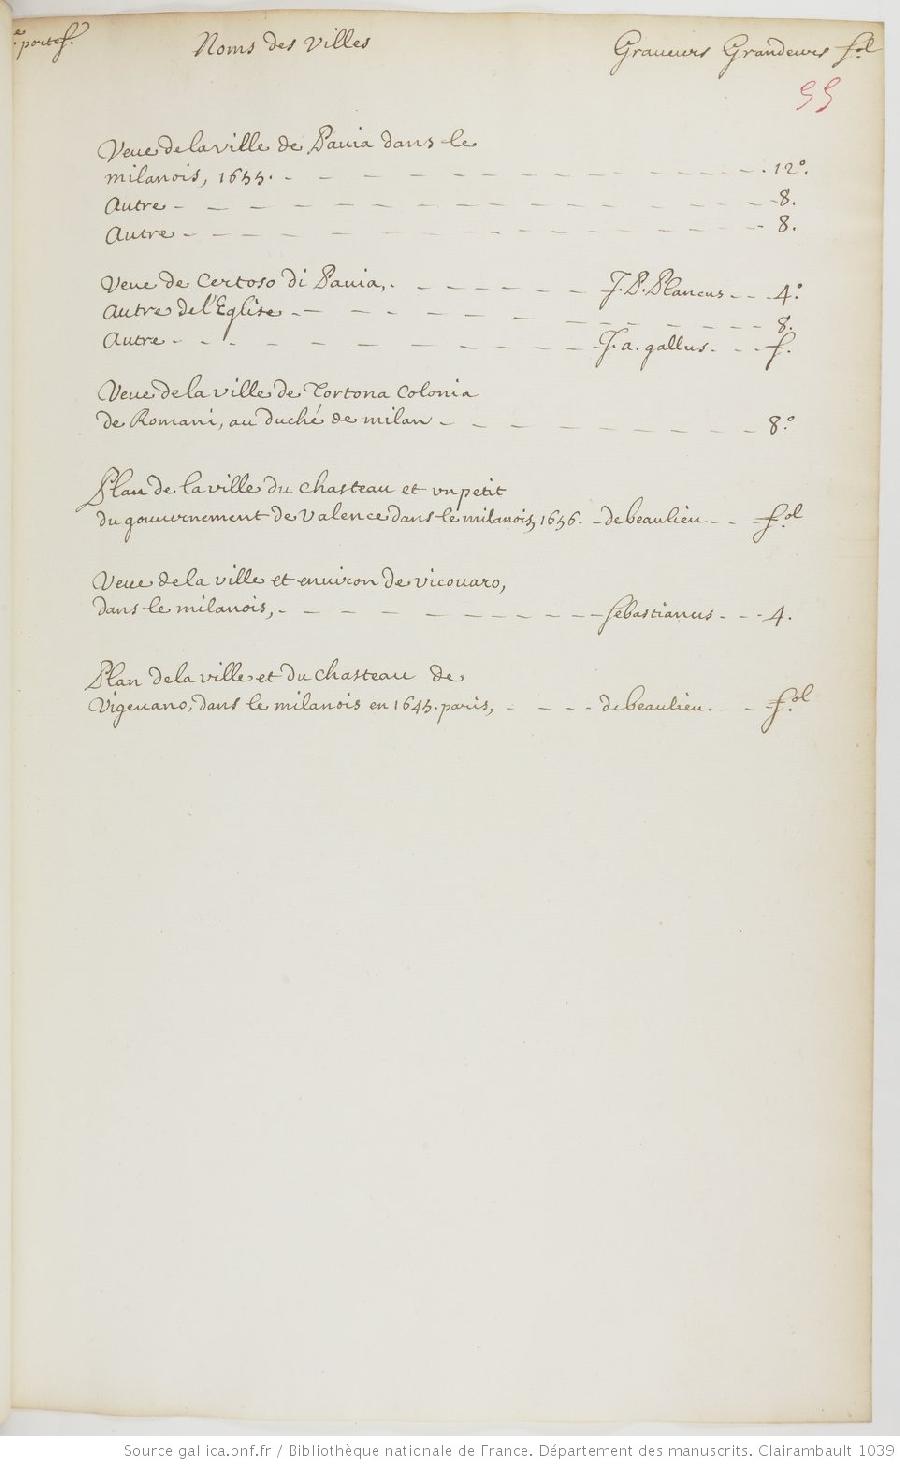 e portef. Noms des Villes Graueurs Grandeurs fol.
55
Veue de la ville de Pauia dans le
milanois, 1655. - - - - 12°.
Autre - - - - 8.
Autre - - - - 8.
Veue de Certoso di Pauia, - - - - J. P. Plancus - - 4°.
Autre de l'Eglise - - - - 8.
Autre - - - - J. a. gallus. - - f.
Veue de la ville de Tortona Colonia
de Romani, au duché de milan - - - - 8.°
Plan de la ville du Chasteau et vn petit
du gouuernement de Valence dans le milanois, 1656. - de beaulieu - - fol.
Veue de la ville et enuiron de vicouaro,
dans le milanois, - - - - sebastianus - - - 4.
Plan de la ville et du Chasteau de
Vigeuano, dans le milanois en 1645. paris, - - - - de beaulieu. - fol.
Source gallica.bnf.fr / Bibliothèque nationale de France. Département des manuscrits. Clairambault 1039